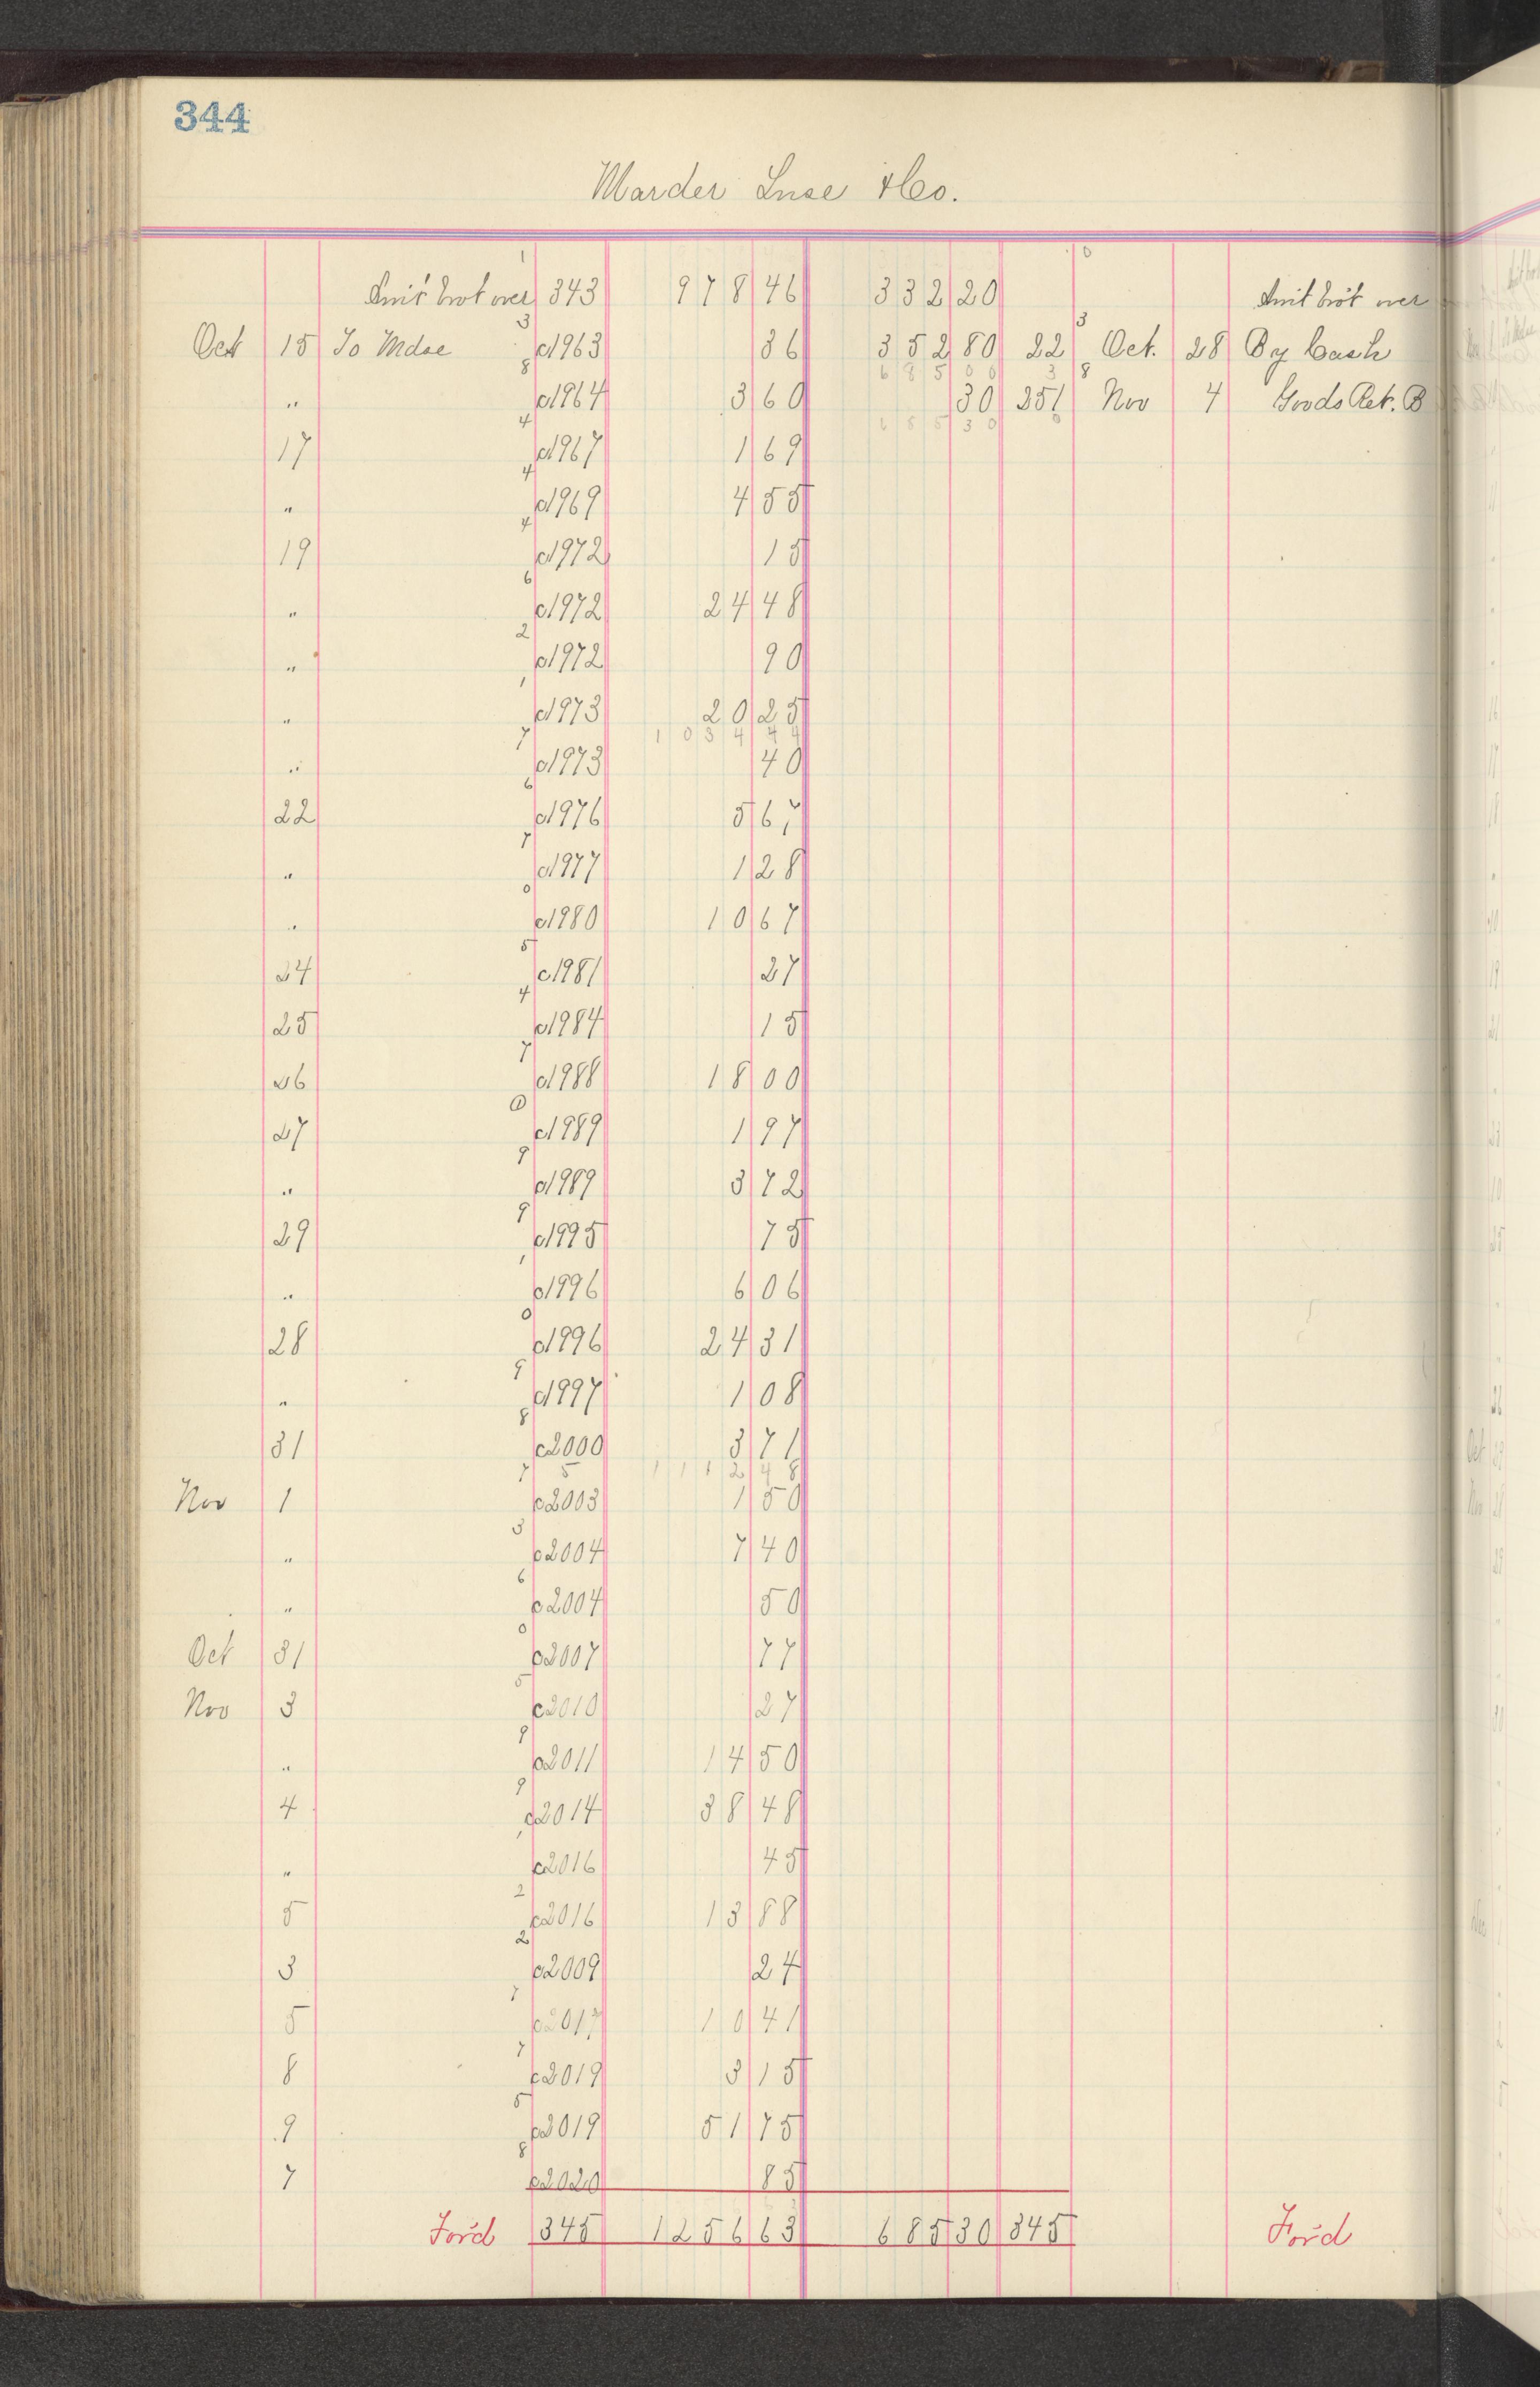 344
Marder Luse & Co.
Amt brot over 343 978 46 332 20 Amt brot over
Oct 15 To Mdse c1963 36 352 80 22 Oct. 28 By Cash
" c1964 3 60 30 251 Nov 4 Goods Ret. B
17 c1967 1 69
" c1969 4 55
19 c1972 15
" c1972 24 48
" c1972 90
" c1973 20 25
1034 44
" c1973 40
22 c1976 5 67
" c1977 1 28
" c1980 10 67
24 c1981 27
25 c1984 15
26 c1988 18 00
27 c1989 1 97
" c1989 3 72
29 c1995 75
" c1996 6 06
28 c1996 24 31
" c1997 1 08
31 c2000 3 71
1112 48
Nov 1 c2003 1 50
" c2004 7 40
" c2004 50
Oct 31 c2007 77
Nov 3 c2010 27
" c2011 14 50
4 c2014 38 48
" c2016 45
5 c2016 13 88
3 c2009 24
5 c2017 10 41
8 c2019 3 15
9 c2019 51 75
7 c2020 85
For'd 345 1256 63 685 30 345 For'd